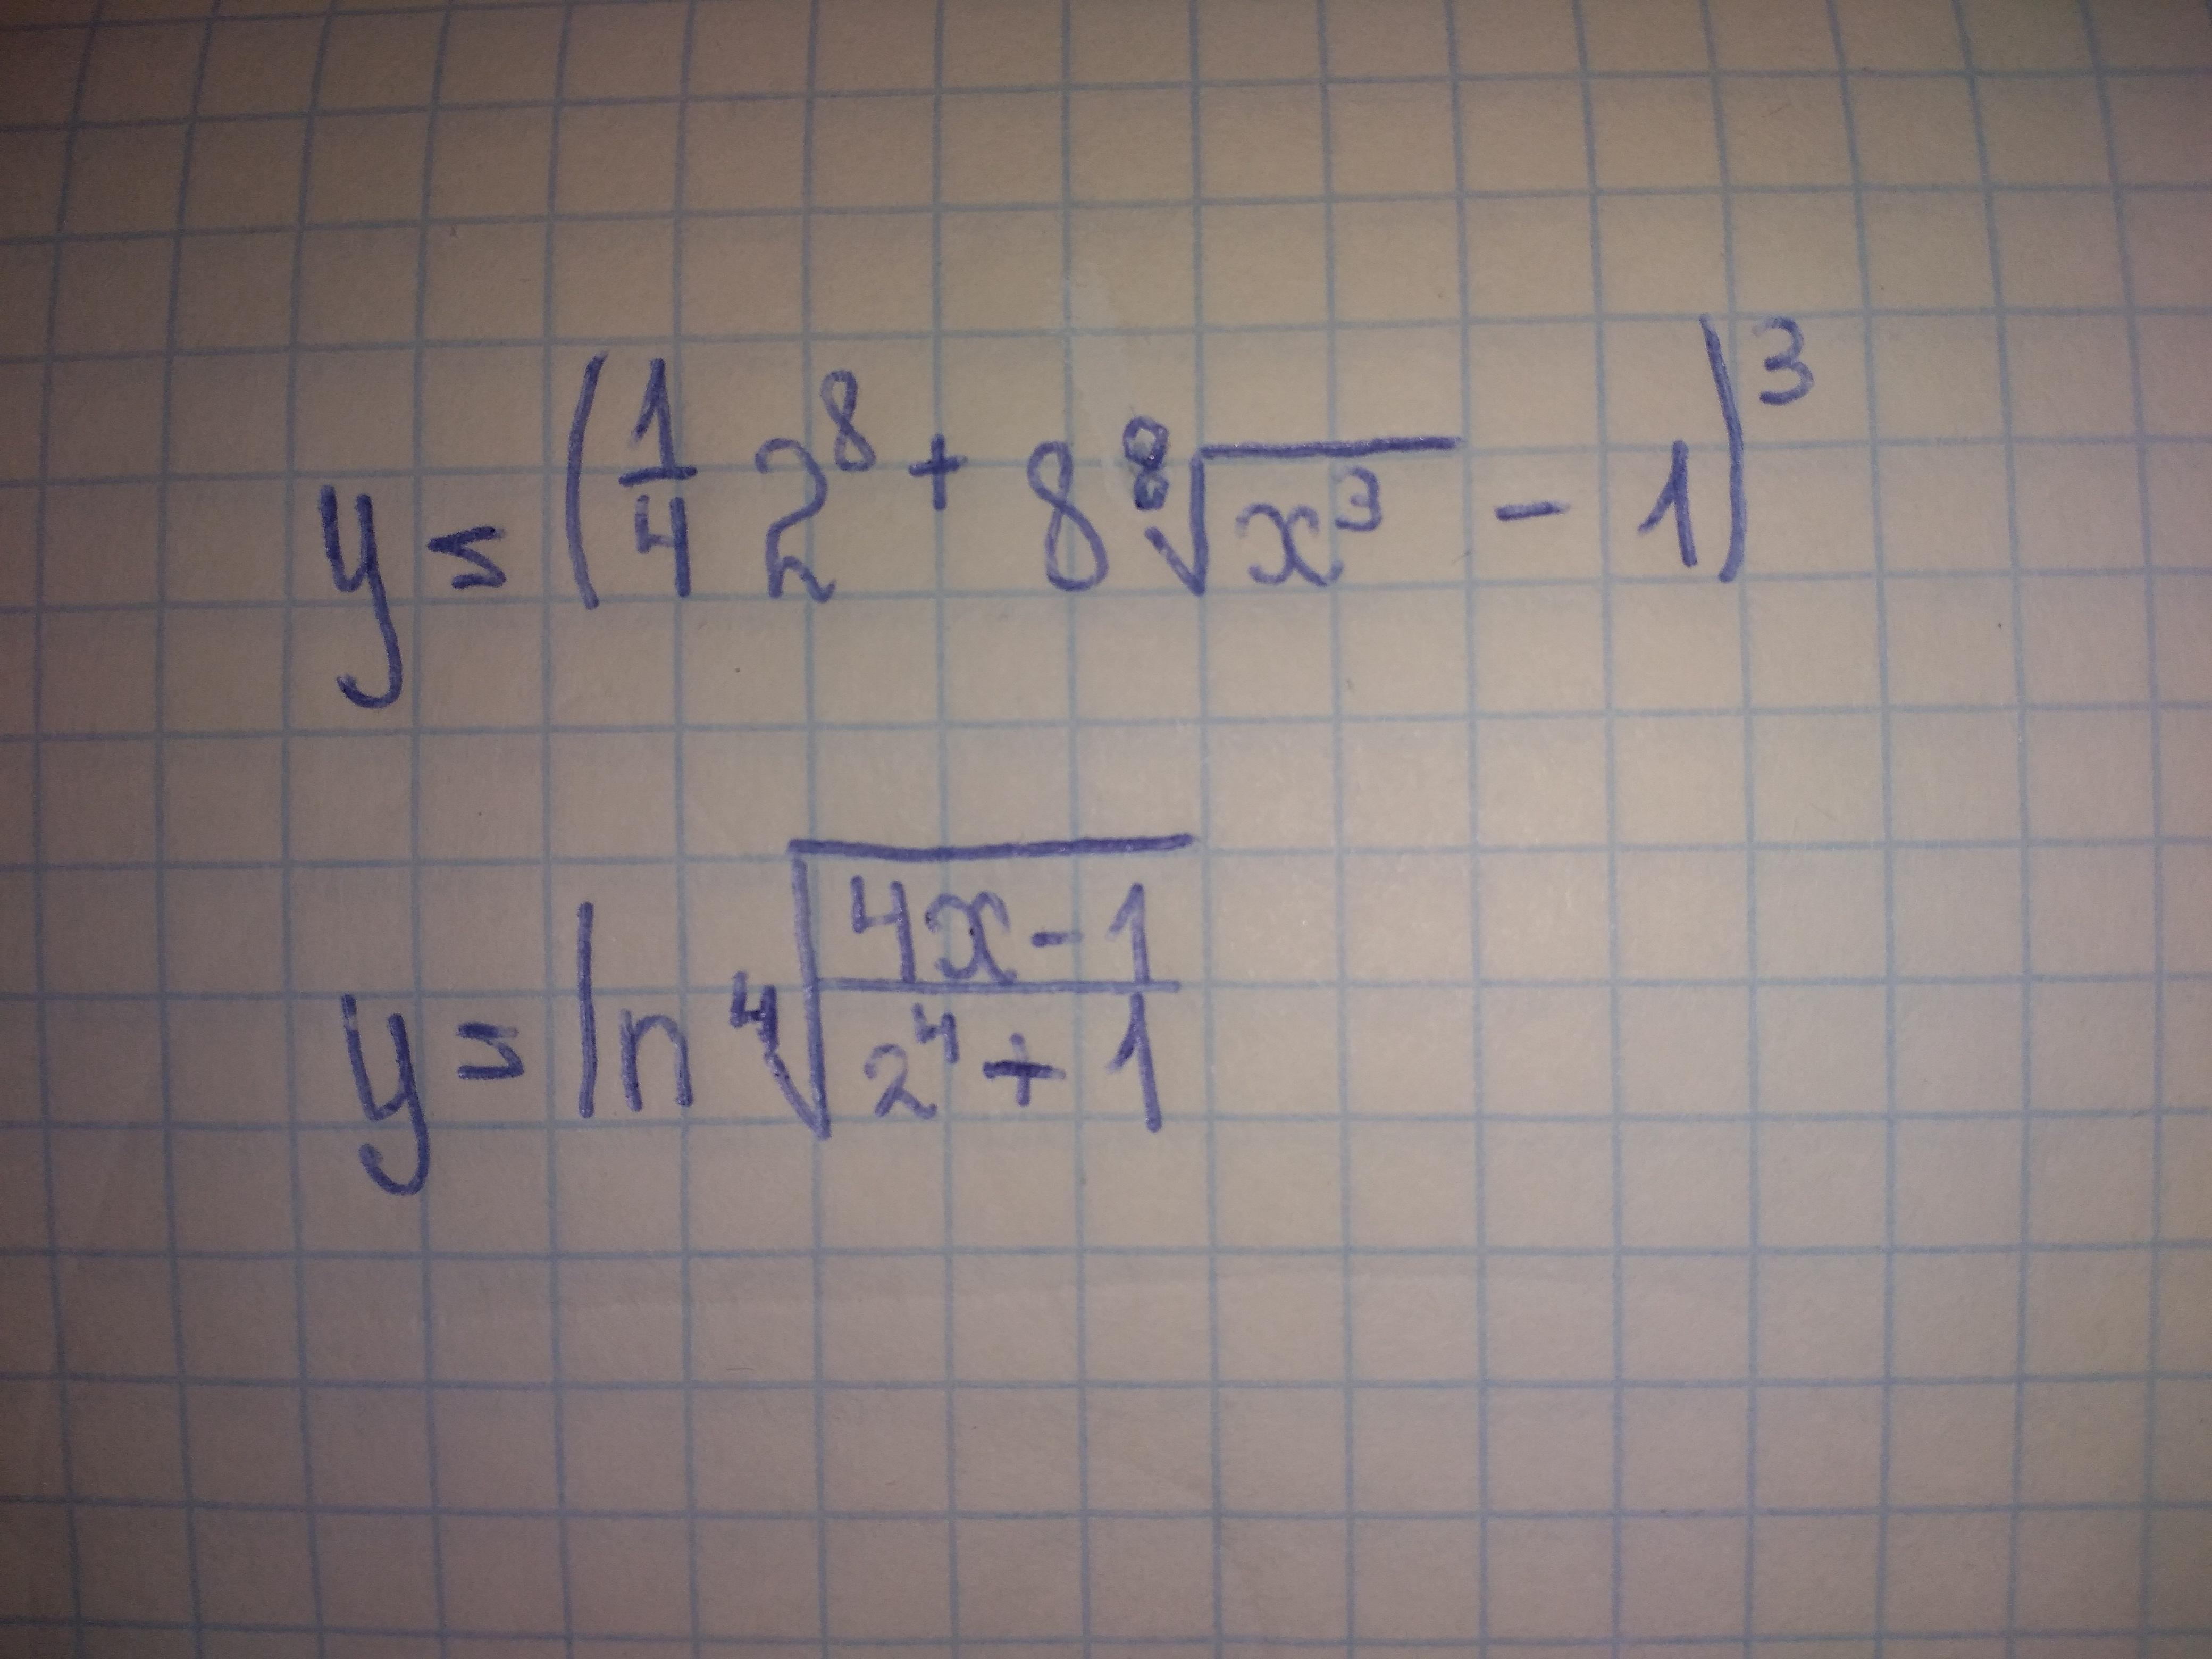 y = (1/4 2^8 + 8 ⁸√(x^3) - 1)^3
y = ln ⁴√((4x-1)/(2^4+1))